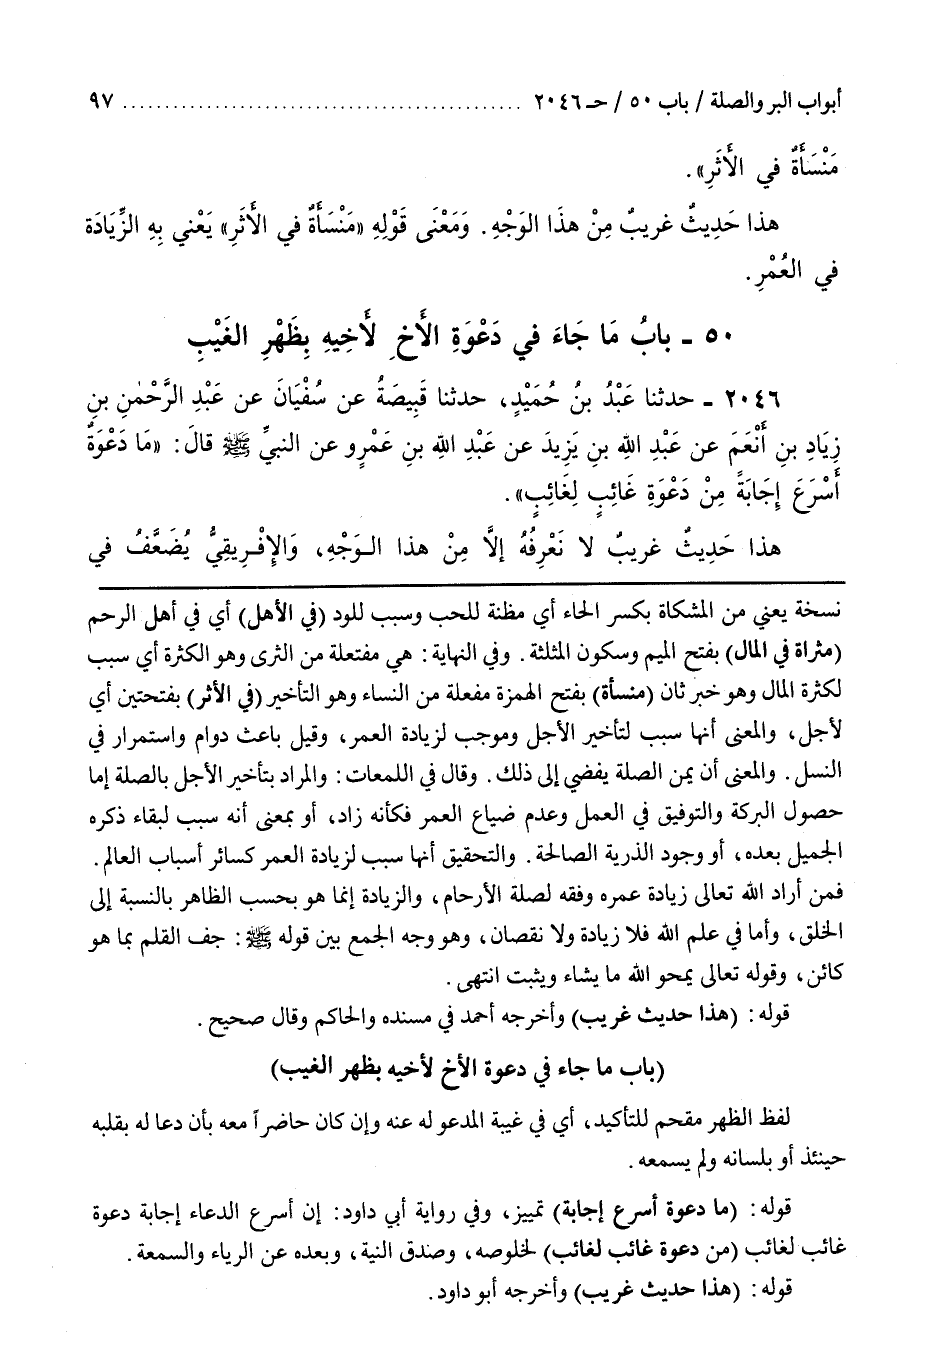 أبواب البر والصلة / باب ٥٠ / حـ ٢٠٤٦ ............................................... ٩٧
مَنْسَأَةٌ في الأَثَرِ».
هذا حَدِيثٌ غريبٌ مِنْ هذَا الوَجْهِ. وَمَعْنَى قَوْلِهِ «مَنْسَأَةٌ في الأَثَرِ» يَعْني بِهِ الزِّيَادَة
في العُمْرِ.
٥٠ ـ بابُ مَا جَاءَ في دَعْوَةِ الأَخِ لأَخِيهِ بِظَهْرِ الغَيْبِ
٢٠٤٦ ـ حدثنا عَبْدُ بنُ حُمَيْدٍ، حدثنا قَبِيصَةُ عن سُفْيَانَ عن عَبْدِ الرَّحْمٰنِ بنِ
زِيَادِ بنِ أَنْعَمَ عن عَبْدِ الله بنِ يَزِيدَ عن عَبْدِ اللهِ بنِ عَمْرٍو عن النبيِّ ﷺ قالَ: «مَا دَعْوَةٌ
أَسْرَعَ إِجَابَةً مِنْ دَعْوَةِ غَائِبٍ لِغَائِبٍ».
هذا حَدِيثٌ غريبٌ لا نَعْرِفُهُ إلَّا مِنْ هذا الـوَجْهِ، وَالإِفْرِيقِيُّ يُضَعَّفُ في
نسخة يعني من المشكاة بكسر الحاء أي مظنة للحب وسبب للود (في الأهل) أي في أهل الرحم
(مثراة في المال) بفتح الميم وسكون المثلثة. وفي النهاية: هي مفتعلة من الثرى وهو الكثرة أي سبب
لكثرة المال وهو خبر ثان (منسأة) بفتح الهمزة مفعلة من النساء وهو التأخير (في الأثر) بفتحتين أي
لأجل، والمعنى أنها سبب لتأخير الأجل وموجب لزيادة العمر، وقيل باعث دوام واستمرار في
النسل. والمعنى أن يمن الصلة يفضي إلى ذلك. وقال في اللمعات: والمراد بتأخير الأجل بالصلة إما
حصول البركة والتوفيق في العمل وعدم ضياع العمر فكأنه زاد، أو بمعنى أنه سبب لبقاء ذكره
الجميل بعده، أو وجود الذرية الصالحة. والتحقيق أنها سبب لزيادة العمر كسائر أسباب العالم.
فمن أراد الله تعالى زيادة عمره وفقه لصلة الأرحام، والزيادة إنما هو بحسب الظاهر بالنسبة إلى
الخلق، وأما في علم الله فلا زيادة ولا نقصان، وهو وجه الجمع بين قوله ﷺ: جف القلم بما هو
كائن، وقوله تعالى يمحو الله ما يشاء ويثبت انتهى.
قوله: (هذا حديث غريب) وأخرجه أحمد في مسنده والحاكم وقال صحيح.
(باب ما جاء في دعوة الأخ لأخيه بظهر الغيب)
لفظ الظهر مقحم للتأكيد، أي في غيبة المدعو له عنه وإن كان حاضراً معه بأن دعا له بقلبه
حينئذ أو بلسانه ولم يسمعه.
قوله: (ما دعوة أسرع إجابة) تمييز، وفي رواية أبي داود: إن أسرع الدعاء إجابة دعوة
غائب لغائب (من دعوة غائب لغائب) لخلوصه، وصدق النية، وبعده عن الرياء والسمعة.
قوله: (هذا حديث غريب) وأخرجه أبو داود.